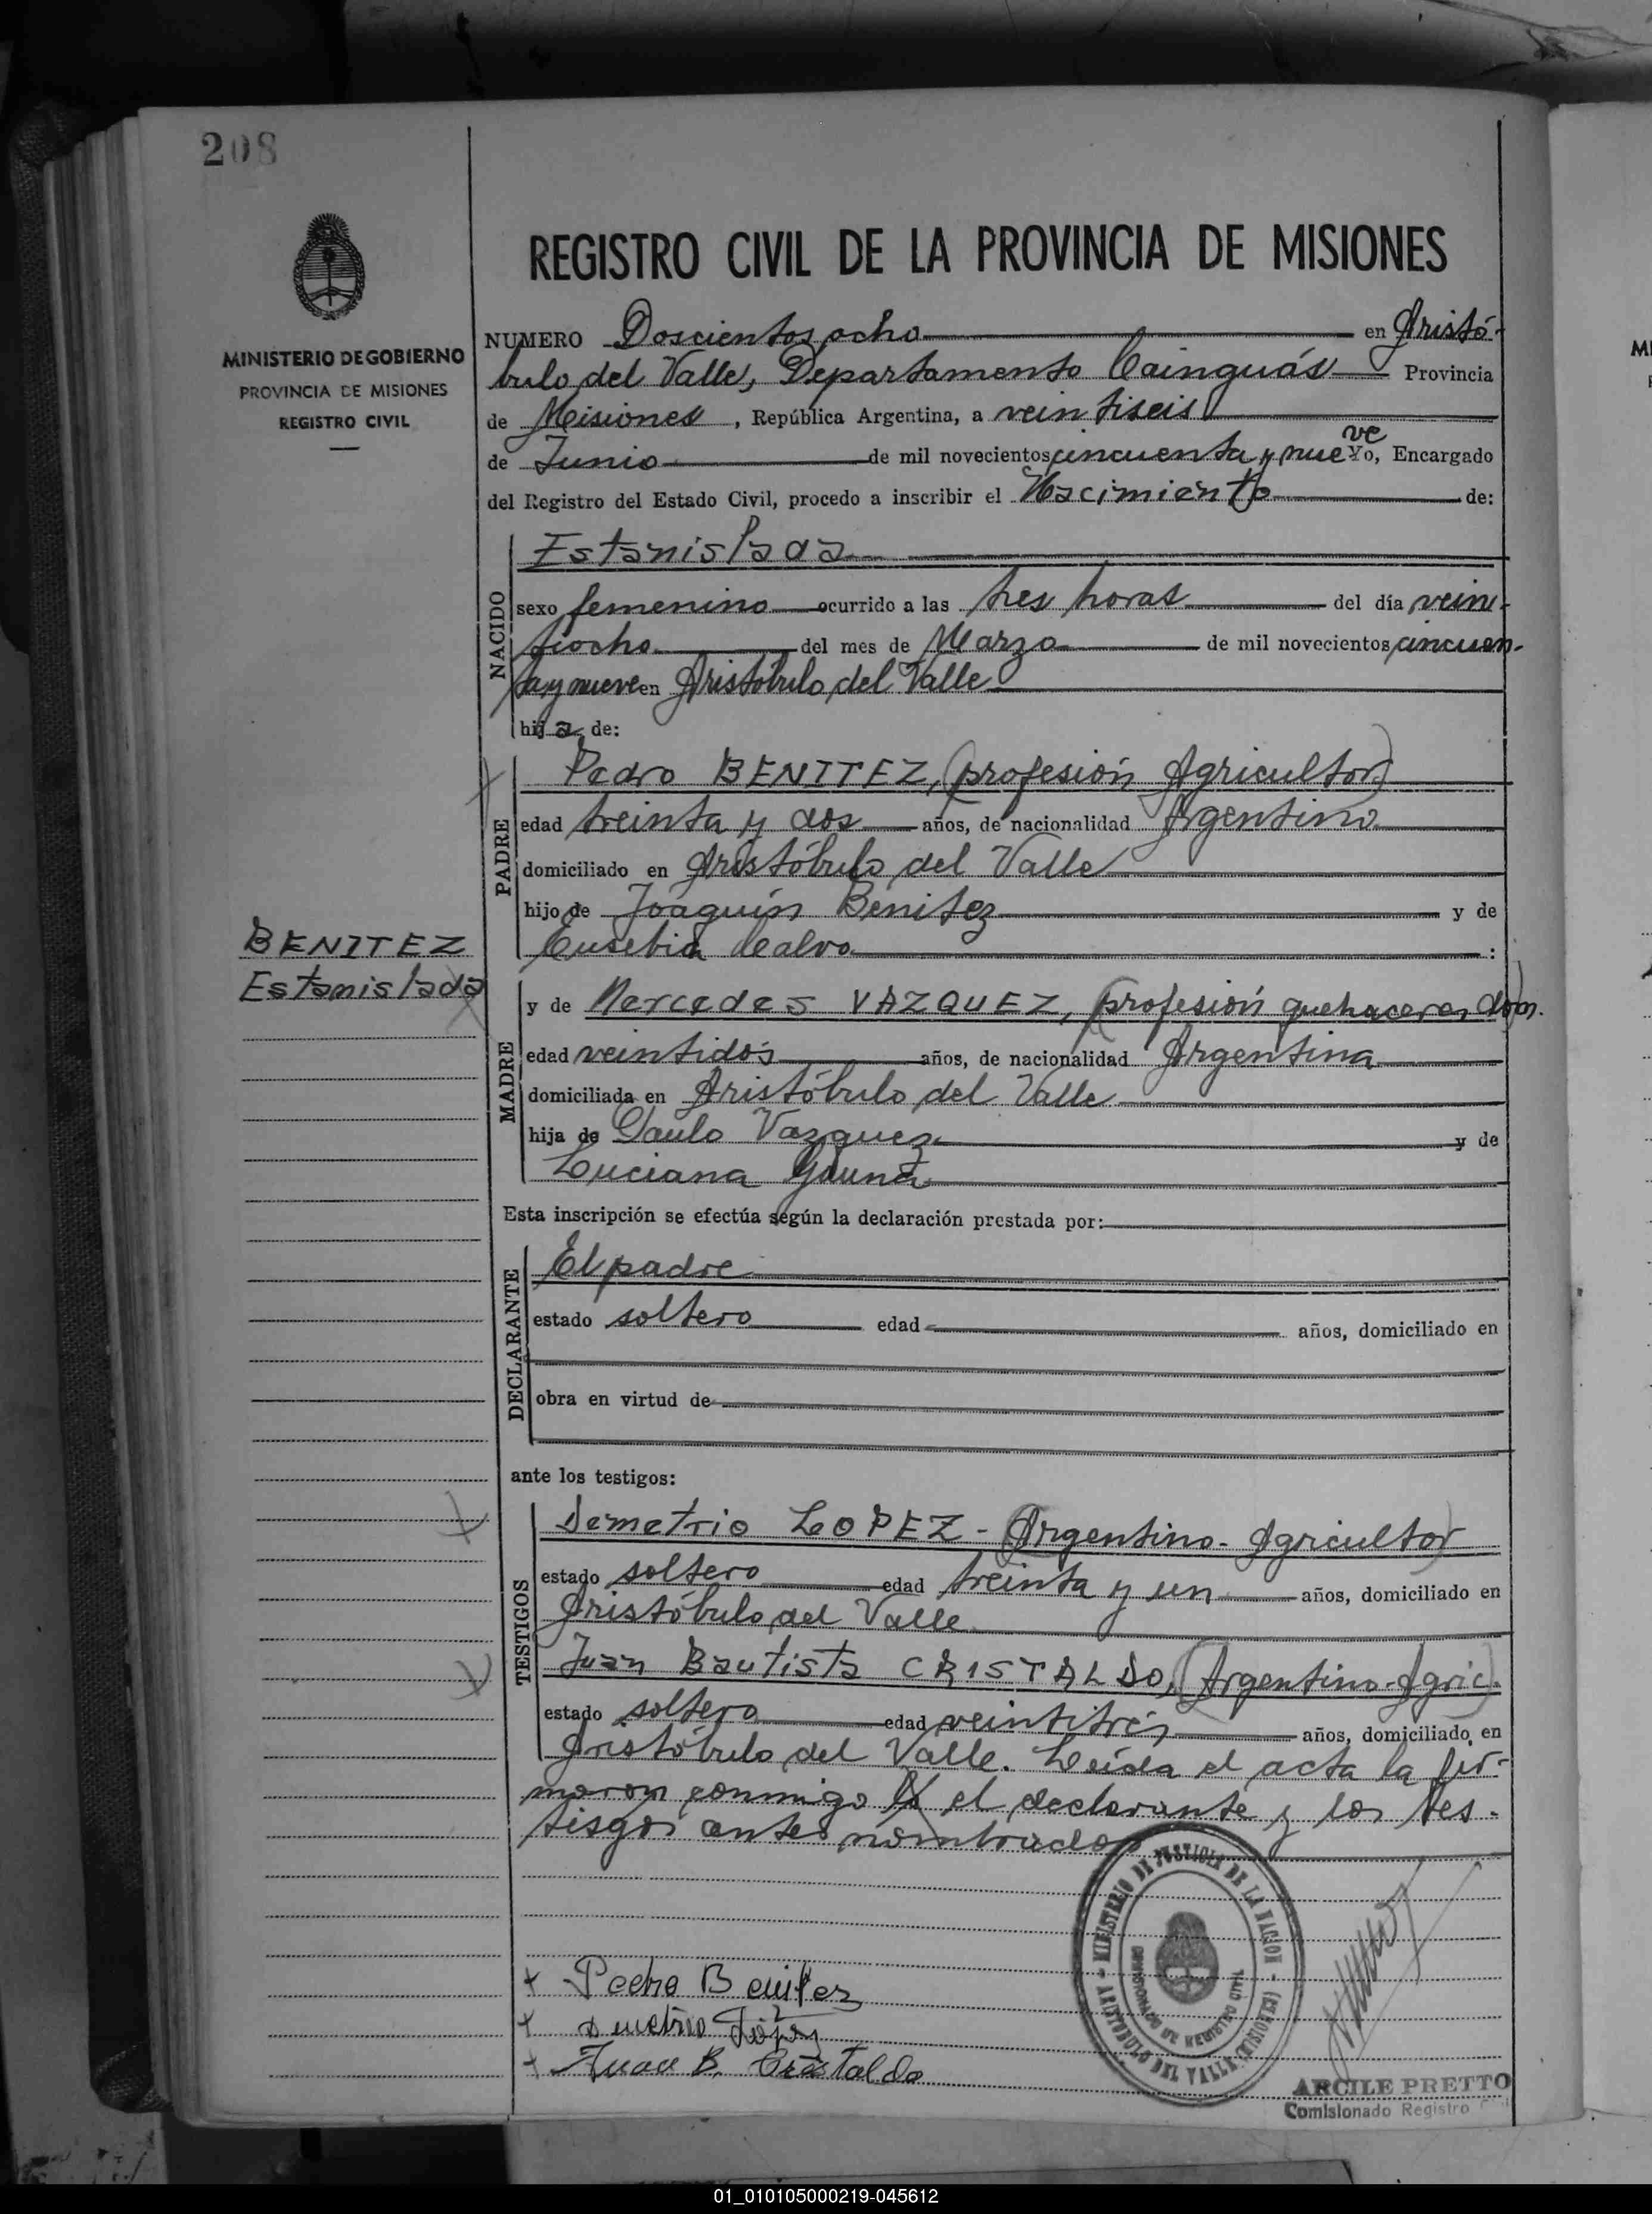 208
MINISTERIO DE GOBIERNO
PROVINCIA DE MISIONES
REGISTRO CIVIL
REGISTRO CIVIL DE LA PROVINCIA DE MISIONES
NUMERO Doscientos ocho en Aristó-
bulo del Valle, Departamento Cainguás Provincia
de Misiones, República Argentina, a veintiseis
de Junio de mil novecientos cincuenta y nueve Yo, Encargado
del Registro del Estado Civil, procedo a inscribir el Nacimiento de:
NACIDO
Estanislada
sexo femenino ocurrido a las tres horas del día vein-
tiocho del mes de Marzo de mil novecientos cincuen-
ta y nueve en Aristóbulo del Valle
hija de:
PADRE
Pedro BENITEZ, (profesión Agricultor)
edad treinta y dos años, de nacionalidad Argentino
domiciliado en Aristóbulo del Valle
hijo de Joaquín Benitez y de
Eusebia Calvo :
BENITEZ
Estanislada
MADRE
y de Mercedes VAZQUEZ, (profesión quehaceres dom.)
edad veintidós años, de nacionalidad Argentina
domiciliada en Aristóbulo del Valle
hija de Paulo Vazquez y de
Luciana Gauna
Esta inscripción se efectúa según la declaración prestada por:
DECLARANTE
El padre
estado soltero edad años, domiciliado en
obra en virtud de
ante los testigos:
TESTIGOS
Demetrio LOPEZ - (Argentino - Agricultor)
estado soltero edad treinta y un años, domiciliado en
Aristóbulo del Valle
Juan Bautista CRISTALDO, (Argentino-Agric).
estado soltero edad veintitrés años, domiciliado en
Aristóbulo del Valle. Leída el acta la fir-
maron conmigo el declarante y los tes-
tisgos antes nombrados
MINISTERIO DE JUSTICIA DE LA NACION
ARISTOBULO DEL VALLE (MISIONES)
DE REGISTRO CIVIL
+ Pedro Benitez
+ Demetrio López
+ Juan B. Cristaldo
ARCILE PRETTO
Comisionado Registro
01_010105000219-045612